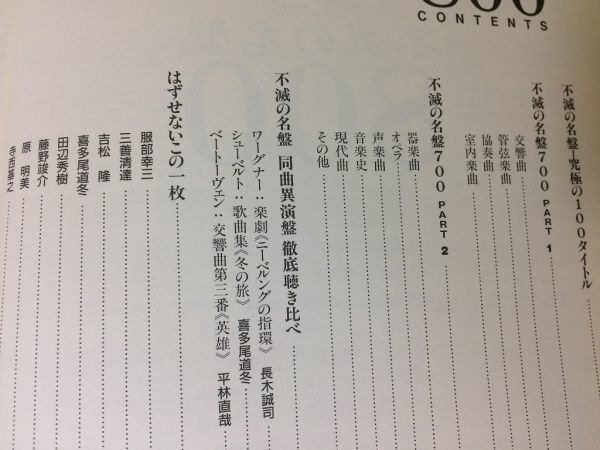 CONTENTS
不滅の名盤―究極の100タイトル
不滅の名盤700 PART 1
交響曲
管弦楽曲
協奏曲
室内楽曲
不滅の名盤700 PART 2
器楽曲
オペラ
声楽曲
音楽史
現代曲
その他
不滅の名盤 同曲異演盤 徹底聴き比べ
ワーグナー:楽劇《ニーベルングの指環》 長木誠司
シューベルト:歌曲集《冬の旅》 喜多尾道冬
ベートーヴェン:交響曲第三番《英雄》 平林直哉
はずせないこの一枚
服部幸三
三善清達
吉松 隆
喜多尾道冬
田辺秀樹
藤野竣介
原 明美
寺西基之